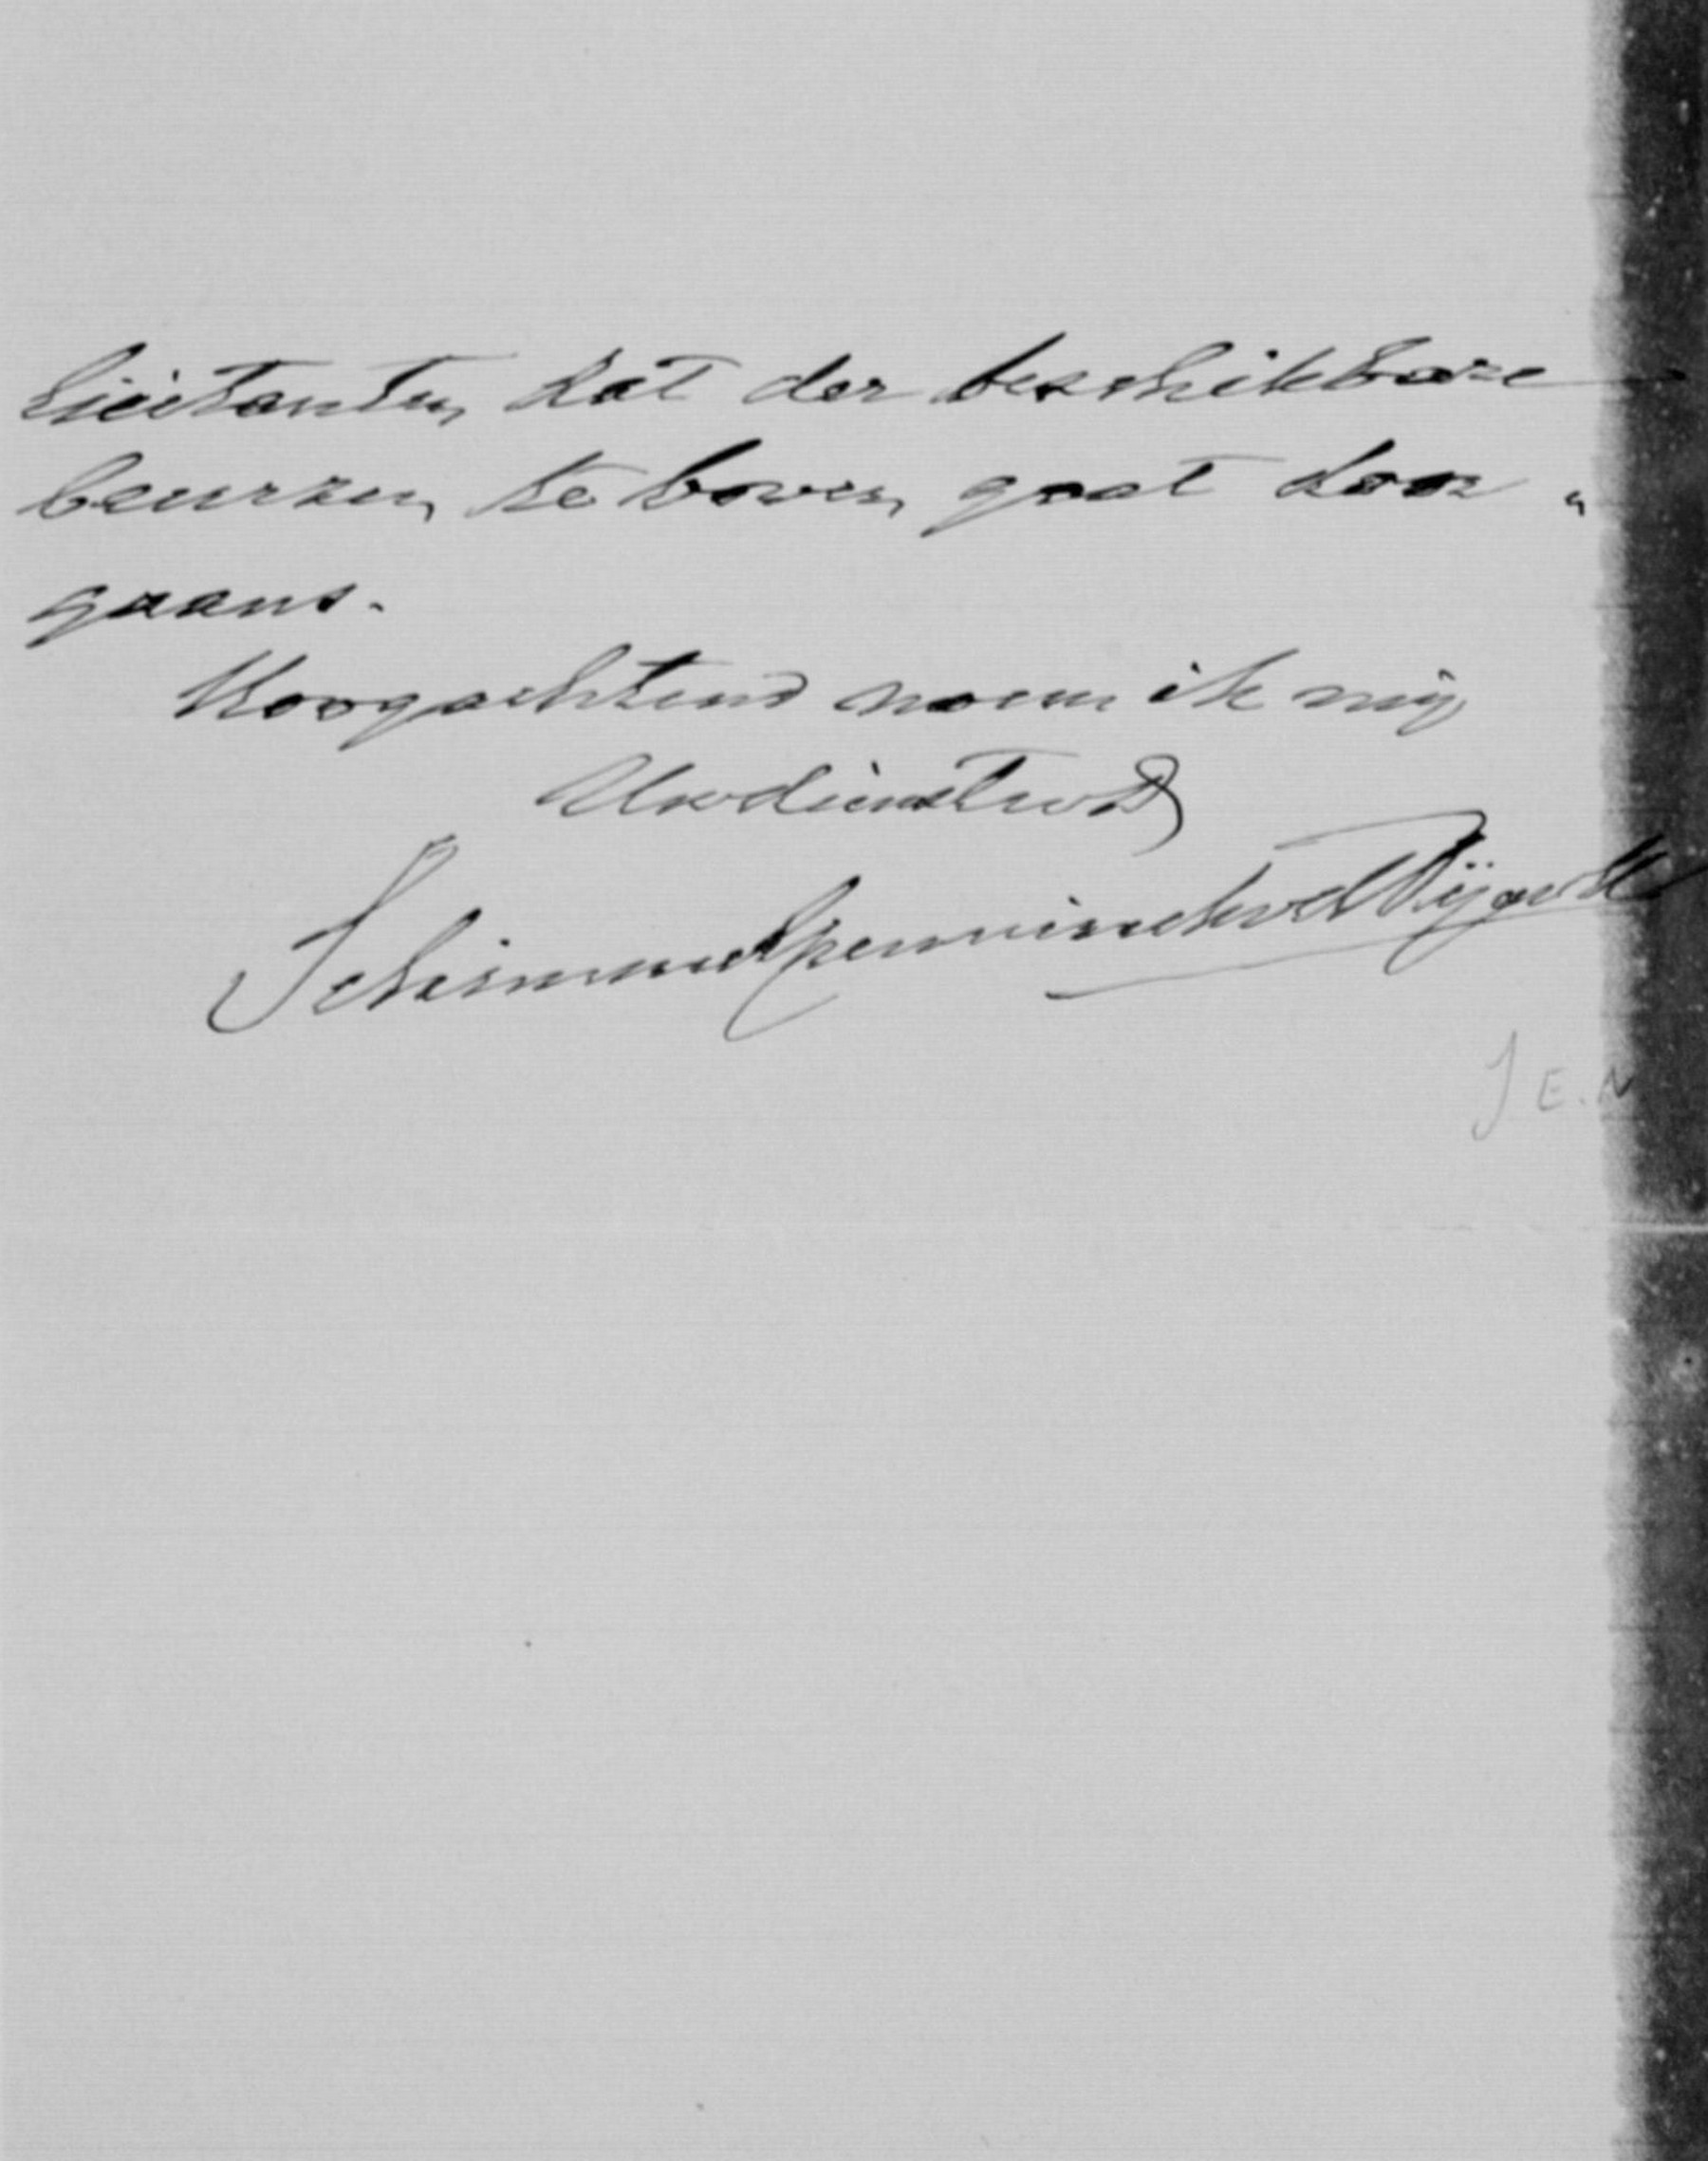 licitanten, dat der beschikbare
beurzen, te boven gaat door „
gaans.
Hoogachtend noem ik mij
Uwdienstwd
Schimmelpenninck vd Nijenh
J E. N